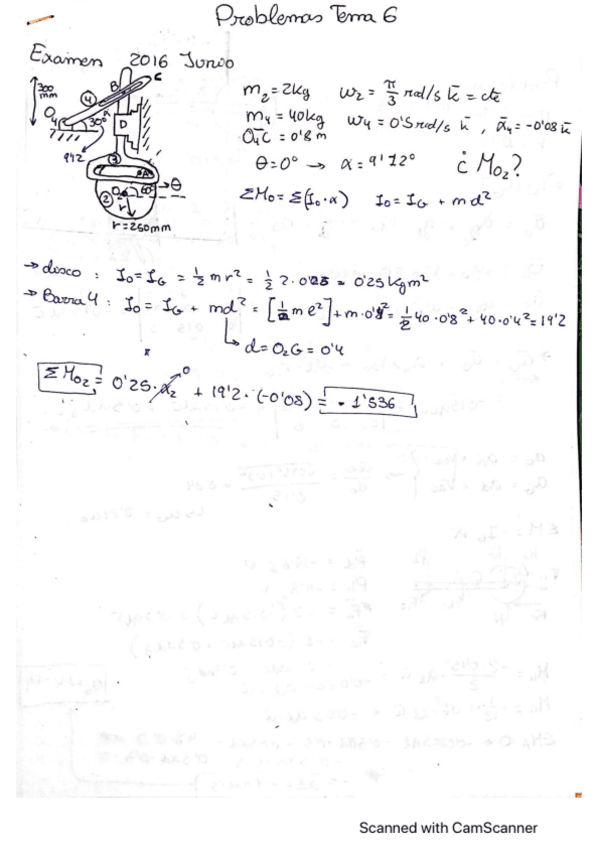 Problemas Tema 6
Examen 2016 Junio
300 mm
B
C
4
O4
30°
α
D
9'12
3
A
O2
60°
θ
2
r
r = 250mm
m2 = 2kg  ω2 = π/3 rad/s k̄ = cte
m4 = 40kg  ω4 = 0'5 rad/s k̄ , ᾱ4 = -0'08 k̄
O4C = 0'8 m
θ = 0° → α = 9'12°  ¿ Mo2?
ΣMo = Σ(Io·α)  Io = IG + md²
→ disco : Io = IG = 1/2 m r² = 1/2 2· 0'25 = 0'25 kg m²
→ Barra 4 : Io = IG + md² = [1/2 m e²] + m·0'4² = 1/2 40·0'8² + 40·0'4² = 19'2
↳ d = O2G = 0'4
ΣMo2 = 0'25 · α2 0 + 19'2 · (-0'08) = - 1'536
Scanned with CamScanner